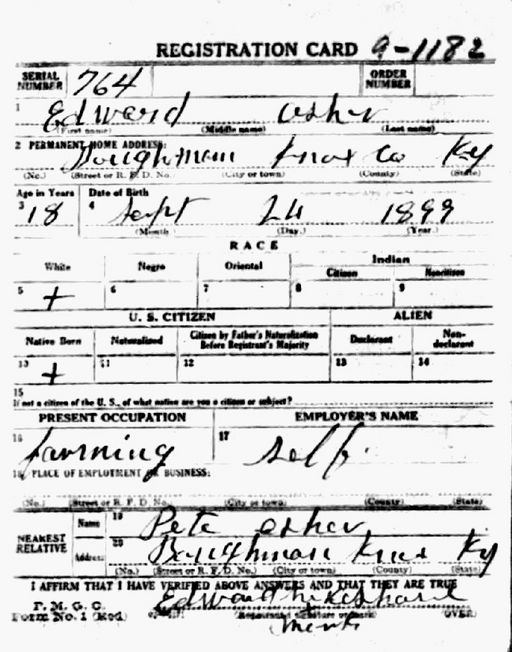 REGISTRATION CARD 9-1182
SERIAL NUMBER 764 ORDER NUMBER
1 Edward Osher
(First name) (Middle name) (Last name)
2 PERMANENT HOME ADDRESS:
Boughman Knox Co Ky
(No.) (Street or R. F. D. No.) (City or town) (County) (State)
Age in Years Date of Birth
3 18 4 Sept 24 1899
(Month) (Day.) (Year.)
RACE
White Negro Oriental Indian
Citizen Noncitizen
5 + 6 7 8 9
U. S. CITIZEN ALIEN
Native Born Naturalized Citizen by Father's Naturalization Before Registrant's Majority Declarant Non-declarant
10 + 11 12 13 14
15
If not a citizen of the U. S., of what nation are you a citizen or subject?
PRESENT OCCUPATION EMPLOYER'S NAME
16 farming 17 self.
18 PLACE OF EMPLOYMENT OR BUSINESS:
(No.) (Street or R. F. D. No.) (City or town) (County) (State)
NEAREST RELATIVE Name 19 Pete Osher
Address 20 Baughman Knox Ky
(No.) (Street or R. F. D. No.) (City or town) (County) (State)
I AFFIRM THAT I HAVE VERIFIED ABOVE ANSWERS AND THAT THEY ARE TRUE
P. M. G. O.
Form No. 1 (Red) Edward his Osher
(Registrant's signature or mark) (OVER)
mark